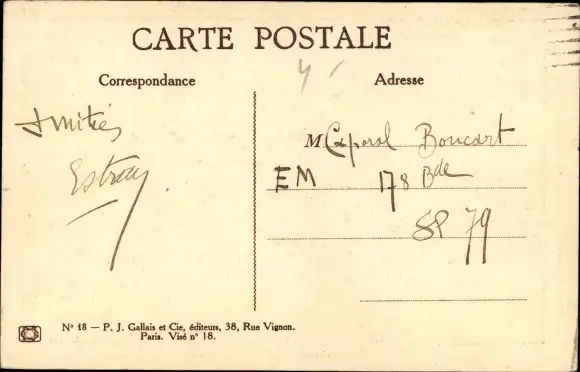 CARTE POSTALE
Correspondance
Adresse
Amitiés
M Caporal Boucart
EM 178 Bde
SP 79
Nº 18 — P. J. Gallais et Cie, éditeurs, 38, Rue Vignon.
Paris. Visé nº 18.